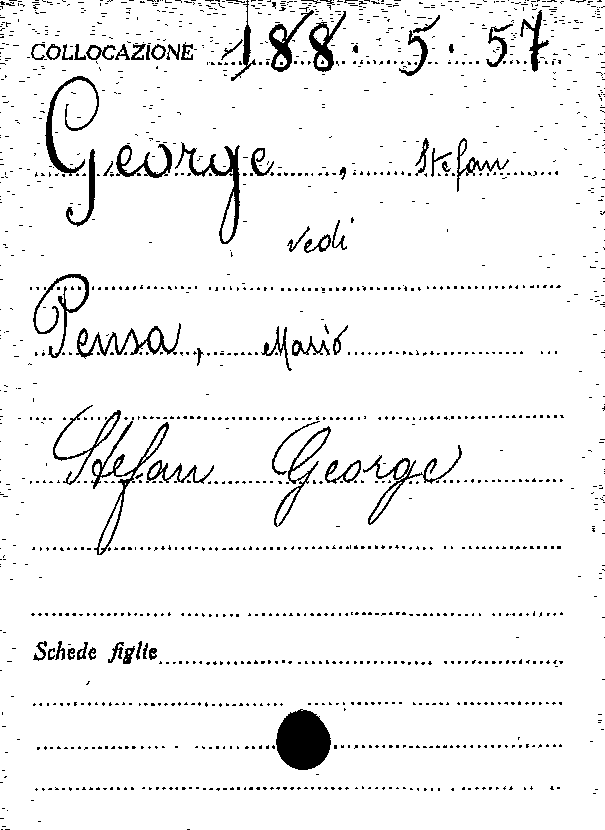 COLLOCAZIONE 188. 5. 57
George, Stefan
vedi
Pensa, Mario
Stefan George
Schede figlie